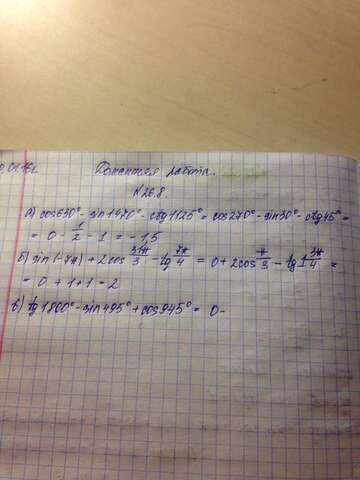 .01.16г. Домашняя работа.
№26.8.
а) cos630° - sin1470° - ctg1125° = cos270° - sin30° - ctg45° =
= 0 - 1/2 - 1 = -1,5
б) sin(-7π) + 2cos 31π/3 - tg 7π/4 = 0 + 2cos π/3 - tg 3π/4 =
= 0 + 1 + 1 = 2
в) tg1800° - sin495° + cos945° = 0 -